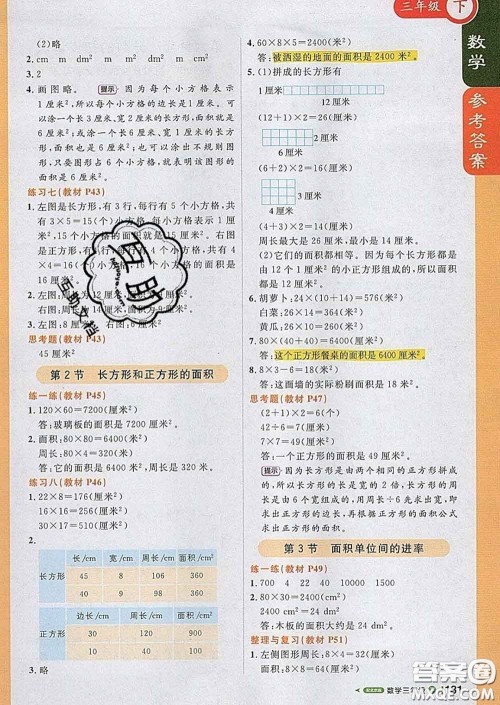 三年级 下
数学
参考答案
(2)略
2. 略
3. 2
4. 画图略。 提示 因为每个小方格为
1厘米²,所以每个小方格的边长是1厘米。可
以涂一个长3厘米,宽2厘米的长方形,面积就
是6厘米²;也可以涂一个长6厘米,宽1厘米
的长方形,面积也是6厘米²;还可以涂出不规则
图形,只要图形占6个小方格,就表示该图形的
面积是6厘米²。
练习七(教材 P43)
1. 左图是长方形,有3行,每行有5个小方格,共
有3×5=15(个)小方格,
米²,15个小方格的面积就是15厘米²。右图
是正方形,有4行,
×4=16(个)小方格,
厘米²。
3. 略
思考题(教材 P43)
45厘米²
第2节 长方形和正方形的面积
练一练(教材 P45)
1. 120×60=7200(厘米²)
答:玻璃板的面积是7200厘米²。
2. 面积:80×80=6400(厘米²)
周长:80×4=320(厘米)
答:它的面积是6400厘米²,周长是320厘米。
练习八(教材 P46)
1. 22×8=176(厘米²)
34×16=544(厘米²)
30×17=510(厘米²)
2.
长方形 长/cm 宽/cm 周长/cm 面积/cm²
45 8 106 360
40 9 98 360
正方形 边长/cm 周长/cm 面积/cm²
30 120 900
10 40 100
3. 略
4. 60×8×5=2400(米²)
答:被洒湿的地面的面积是2400米²。
5. (1)拼成的长方形有
1厘米
12厘米
(12+1)×2=26(厘米)
2厘米
6厘米
(6+2)×2=16(厘米)
3厘米
4厘米
(4+3)×2=14(厘米)
周长最大是26厘米,最小是14厘米。
(2)它们的面积都相等。因为每个长方形都是
由12个1厘米²的小正方形组成的,所以面积
都是12厘米²。
6. 胡萝卜:24×(10+14)=576(米²)
白菜:26×14=364(米²)
黄瓜:26×10=260(米²)
7. 80×80=6400(厘米²)
答:这个正方形餐桌的面积是6400厘米²。
8. 8×3-6=18(米²)
答:这面墙的实际粉刷面积是18米²。
思考题(教材 P47)
(2+1)×2=6
42÷6=7(厘米)
7×7=49(厘米²)
答:一个正方形的面积是49厘米²。
提示 因为长方形是由两个相同的正方形拼成
的,所以长方形的长是宽的2倍,长方形的周长
是由6个宽组成的,用周长÷6先求出宽,即
求出正方形的边长,再根据正方形的面积公式
求出正方形的面积。
第3节 面积单位间的进率
练一练(教材 P49)
1. 700 4 22 40 10000 1500
2. 80×30=2400(cm²)
2400cm²=24dm²
答:木板的面积大约是24dm²。
整理与复习(教材 P51)
互助
互助文档
答案圈
MXQE.COM
数学三年级
131